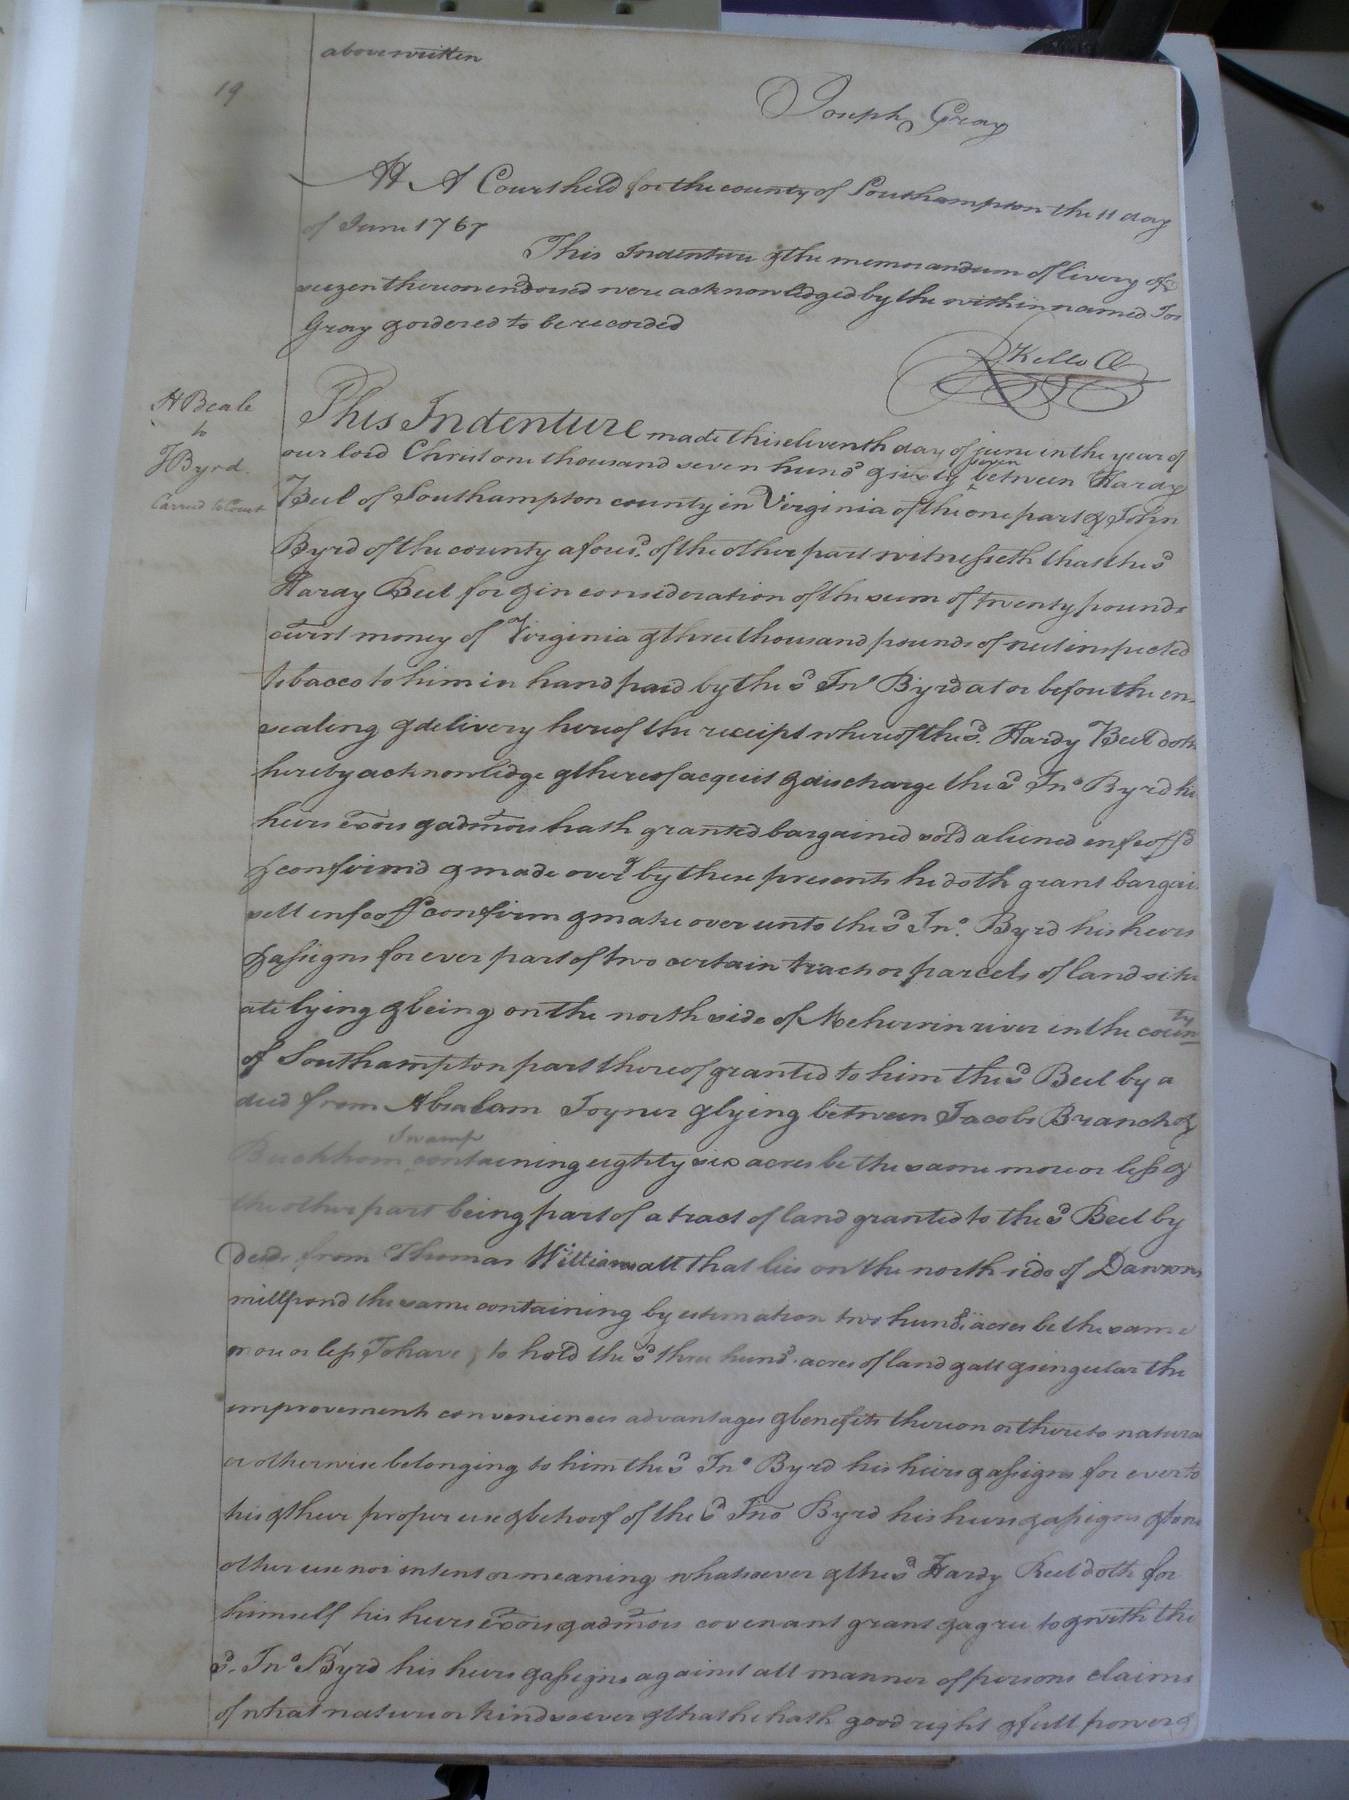 above written
19
Joseph Gray
At A Court held for the county of Southampton the 11 day
of June 1767
This Indenture & the memorandum of livery &
seizen thereon endorsed were acknowledged by the within named Jos
Gray & ordered to be recorded
R Kello Cl
H Beale
to
J Byrd.
Carried to Court
This Indenture made this eleventh day of june in the year of
our lord Christ one thousand seven hund & sixty seven between Hardy
Beel of Southampton county in Virginia of the one part & John
Byrd of the county afores.d of the other part witnesseth that the sd
Hardy Beel for & in consideration of the sum of twenty pounds
curt money of Virginia & three thousand pounds of neet inspected
tobacco to him in hand paid by the sd Jno Byrd at or before the en-
sealing & delivery hereof the receipt whereof the sd. Hardy Beel doth
hereby acknowledge & thereof acquit & discharge the sd Jno Byrd his
heirs exors & admors hath granted bargained sold aliened enfeoffd
& confirmd & made over & by these presents he doth grant bargai
sell enfeoff confirm & make over unto the sd Jno. Byrd his heirs
& assigns for ever part of two certain tracts or parcels of land situ
ate lying & being on the north side of Meherrin river in the county
of Southampton part thereof granted to him the sd Beel by a
deed from Abraham Joyner & lying between Jacobs Branch &
Buckhorn swamp containing eighty six acres be the same more or less &
the other part being part of a tract of land granted to the sd Beel by
deed from Thomas Williams all that lies on the north side of Dawsons
millpond the same containing by estimation two hund.d acres be the same
more or less To have & to hold the sd three hund acres of land & all & singular the
improvements conveniences advantages & benefits thereon or thereto natura
or otherwise belonging to him the sd Jno Byrd his heirs & assigns for ever to
his & their proper use & behoof of the sd Jno Byrd his heirs & assigns & to no
other use nor intent or meaning whatsoever & the sd Hardy Beel doth for
himself his heirs exors & admors covenant grant & agree to & with the
sd. Jno Byrd his heirs & assigns against all manner of persons claims
of what nature or kind soever & that he hath good right & full power &